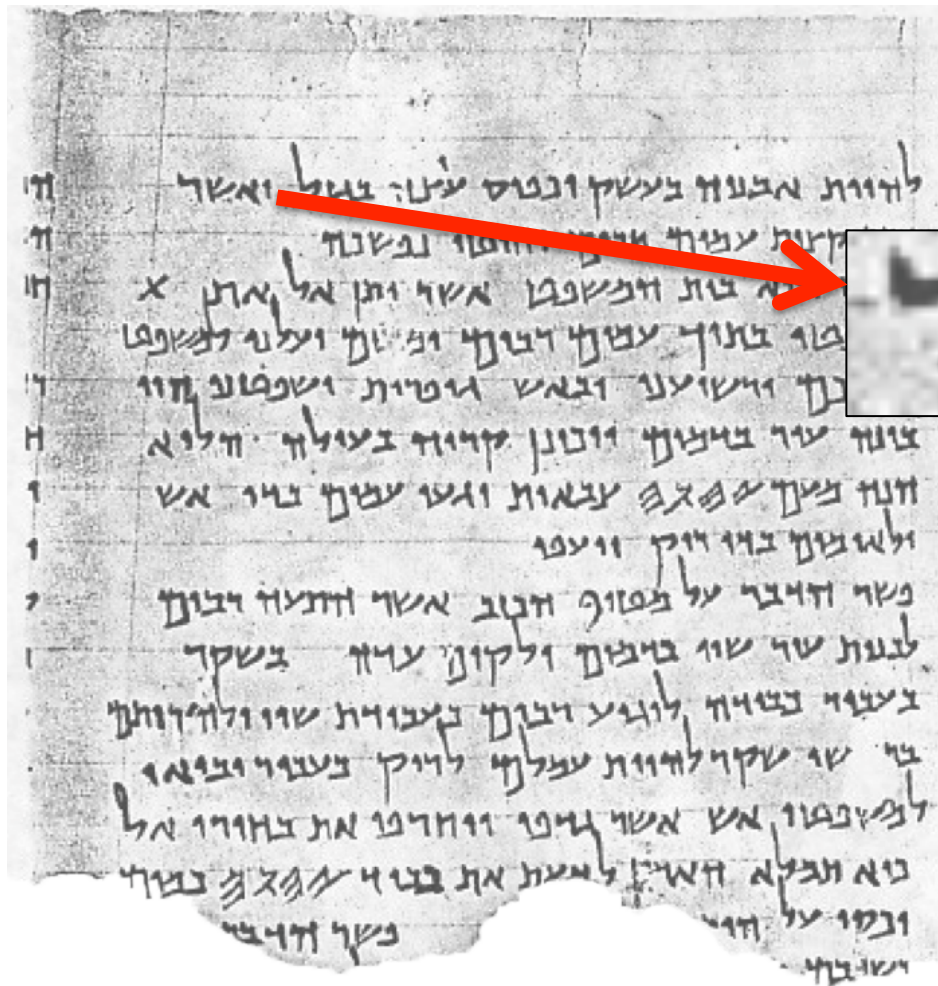 להיות אבניה בעשק וכפיס עיצה בגזל ואשר
קצות עמים רבים וחוטי נפשכה
בית המשפט אשר יתן אל את X
בתוך עמים רבים ומשם יעלנו למשפט
ירשיענו ובאש גופרית ישפטנו הוי
בונה עיר בדמים ויכונן קריה בעולה הלוא
הנה מעם 𐤉𐤄𐤅𐤄 צבאות יגעו עמים בדי אש
ולאומים בדי ריק ייעפו
פשר הדבר על מטיף הכזב אשר התעה רבים
לבנות עיר שוו בדמים ולקים עדה בשקר
בעבור כבודה לוגיע רבים בעבודת שוו ולהרותם
שקר להיות עמלם לריק בעבור יבואו
למשפטי אש אשר גדפו ויחרפו את בחירי אל
כיא תמלא הארץ לדעת את כבוד 𐤉𐤄𐤅𐤄 כמים
יכסו על פשר הדבר